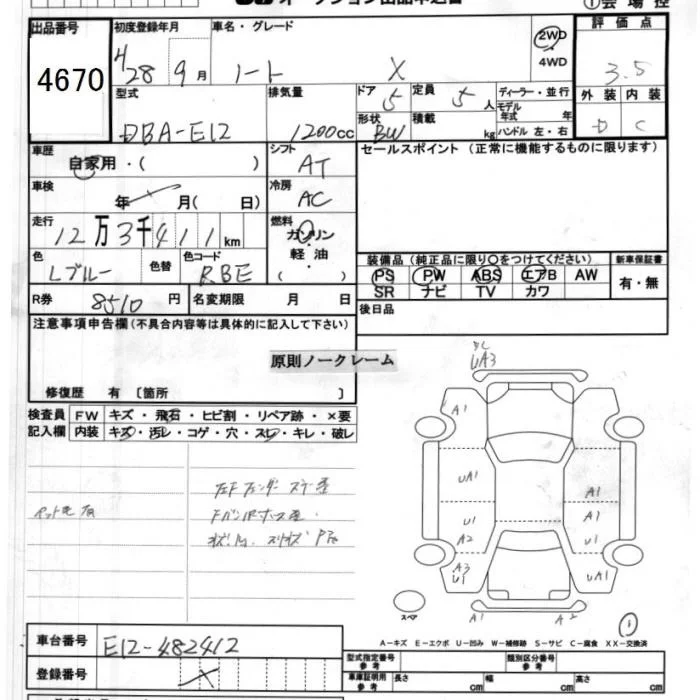 オークション出品申込書
①会場控
出品番号
4670
初度登録年月
H28 9月
車名・グレード
ノート X
2WD
4WD
評価点
3.5
型式
DBA-E12
排気量
1200cc
ドア 5
定員 5人
形状 BW
積載 kg
ディーラー・並行
モデル年式 年
ハンドル 左・右
外装 内装
D C
車歴
自家用・( )
シフト
AT
セールスポイント (正常に機能するものに限ります)
車検
年 月( 日)
冷房
AC
走行
12万3千411km
燃料
ガソリン
軽油
( )
色
Lブルー
色替
色コード
RBE
装備品 (純正品に限り○をつけてください)
PS PW ABS エアB AW
SR ナビ TV カワ
新車保証書
有・無
R券 8510円
名変期限 月 日
後日品
注意事項申告欄(不具合内容等は具体的に記入して下さい)
原則ノークレーム
修復歴 有〔箇所 〕
検査員記入欄
FW キズ・飛石・ヒビ割・リペア跡・×要
内装 キズ・汚レ・コゲ・穴・スレ・キレ・破レ
UA3
A1
UA1
A1
U1
A1
A2
U1
A3
U1
UA1
A1
A2
スペア
①
A-キズ E-エクボ U-凹み W-補修跡 S-サビ C-腐食 XX-交換済
車台番号
E12-482412
登録番号
型式指定番号 参考
類別区分番号 参考
車庫証明用 参考
長さ cm
幅 cm
高さ cm